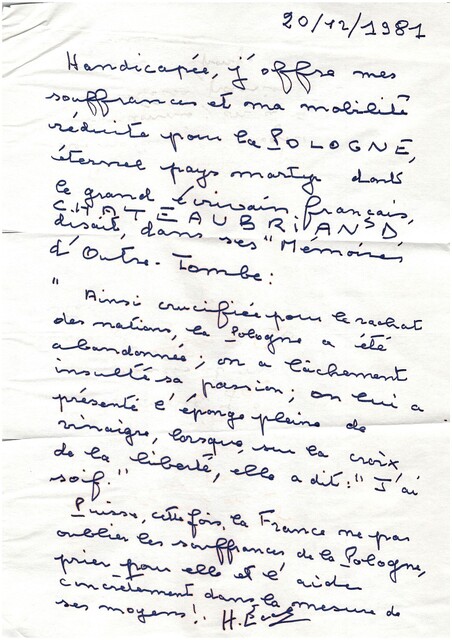 20/12/1981
Handicapée, j'offre mes
souffrances et ma mobilité
réduite pour la POLOGNE,
éternel pays martyr dont
le grand écrivain français,
CHATEAUBRIAND
disait, dans ses "Mémoires
d'Outre-Tombe :
"Ainsi crucifiée pour le rachat
des nations, la Pologne a été
abandonnée ; on a lâchement
insulté sa passion ; on lui a
présenté l'éponge pleine de
vinaigre, lorsque, sur la croix
de la liberté, elle a dit : "J'ai
soif."
Puisse, cette fois, la France ne pas
oublier les souffrances de la Pologne,
prier pour elle et l'aider
concrètement dans la mesure de
ses moyens !. H.